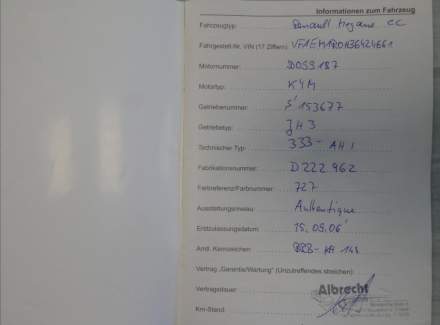 Informationen zum Fahrzeug
Fahrzeugtyp: Renault Megane CC
Fahrgestell-Nr. VIN (17 Ziffern):
Motornummer: D059187
Motortyp: K4M
Getriebenummer: S'153677
Getriebetyp: JH3
Technischer Typ: 333-AH1
Fabrikationsnummer: D222962
Farbreferenz/Farbnummer: 727
Ausstattungsniveau: Authentique
Erstzulassungsdatum: 15.09.06
Amtl. Kennzeichen:
Vertrag „Garantie/Wartung" (Unzutreffendes streichen):
Vertragsdauer: Albrecht
Km-Stand: